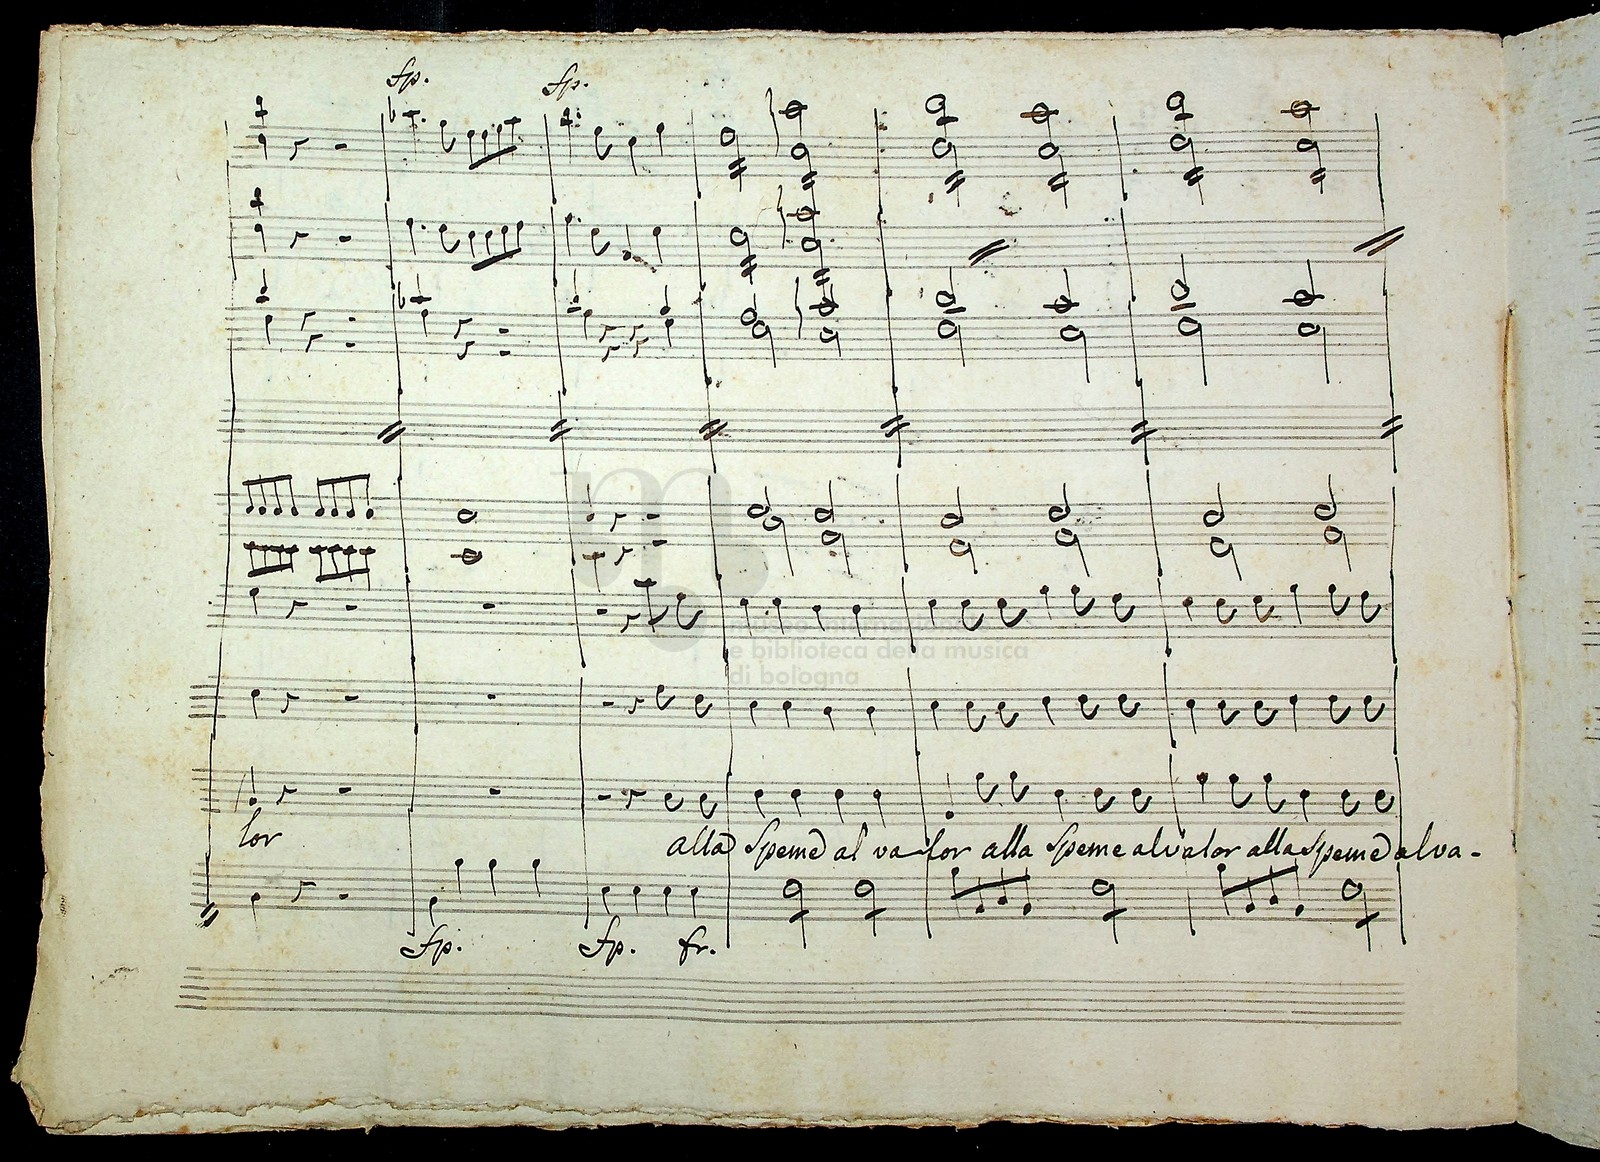 fp. fp.
museo internazionale
e biblioteca della musica
di bologna
lor alla Speme al valor alla Speme al valor alla Speme al va-
fp. fp. fr.